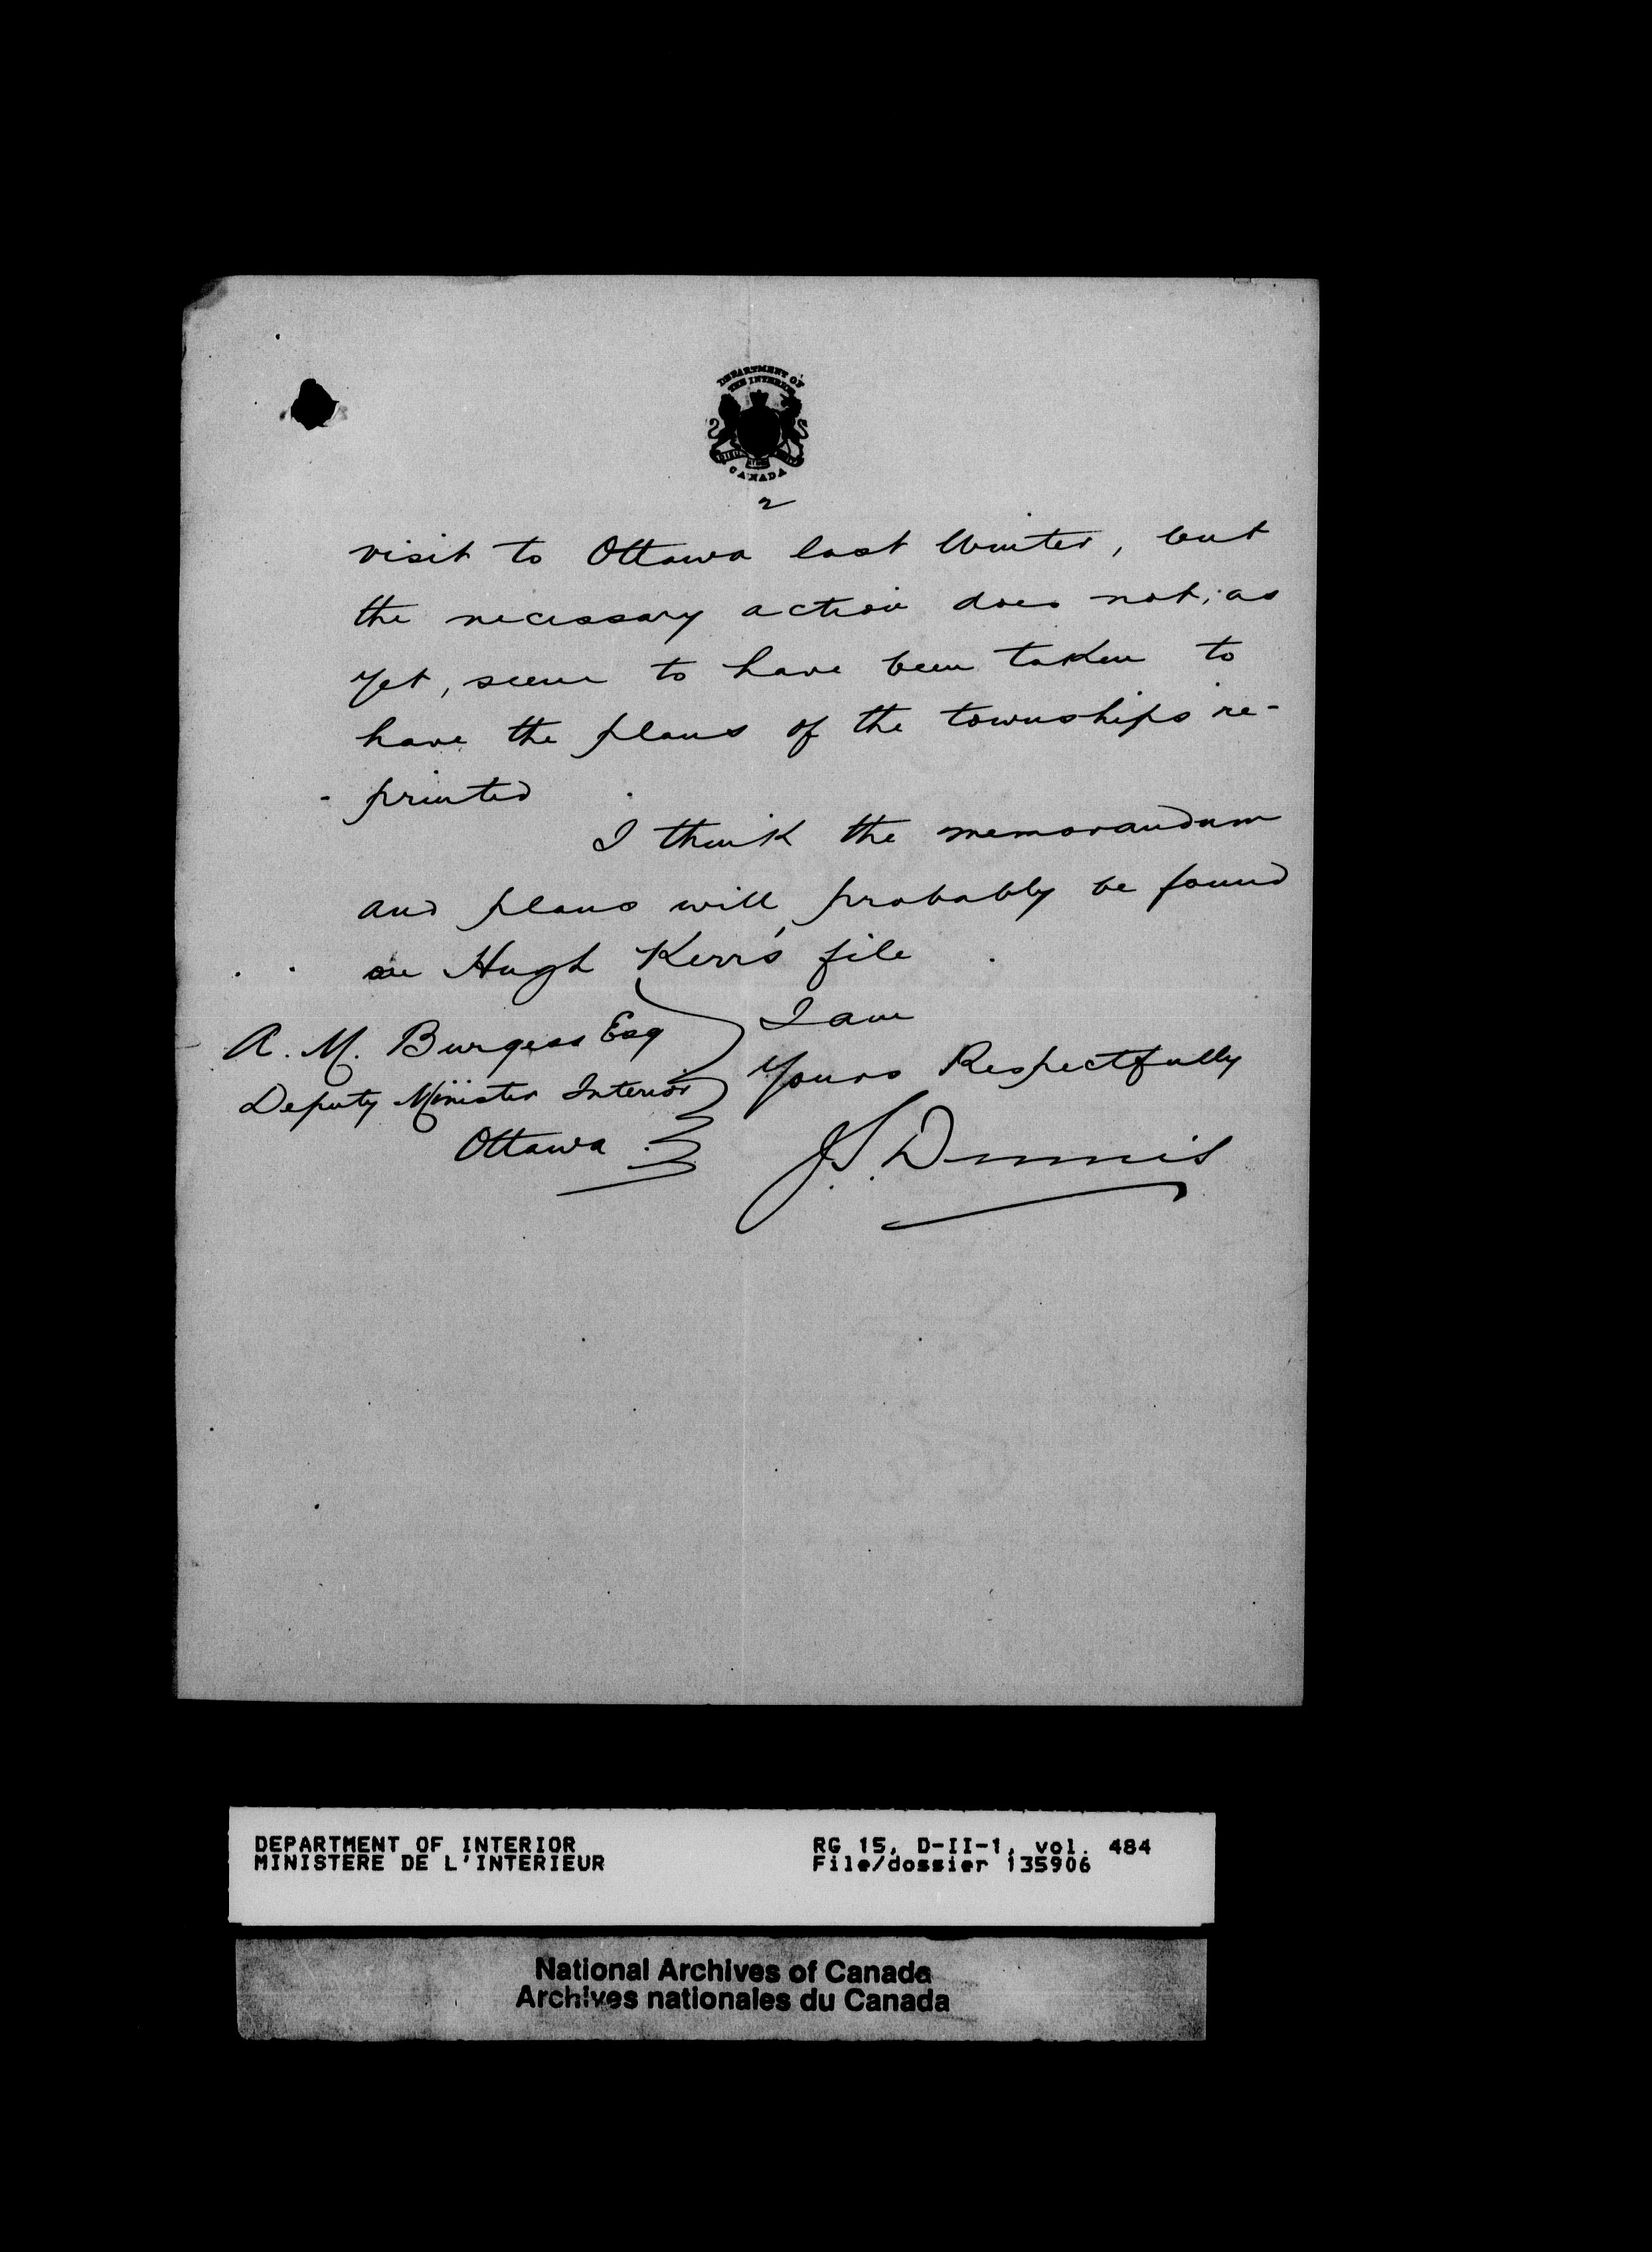 DEPARTMENT OF
THE INTERIOR
CANADA
2
visit to Ottawa last Winter, but
the necessary action does not, as
yet, seem to have been taken to
have the plans of the townships re-
- printed
I think the memorandum
and plans will probably be found
on Hugh Kerr's file
I am
A. M. Burgess Esq
Yours Respectfully
Deputy Minister Interior
Ottawa
J.S. Dennis
DEPARTMENT OF INTERIOR
MINISTERE DE L'INTERIEUR
RG 15, D-II-1, vol. 484
File/dossier 135906
National Archives of Canada
Archives nationales du Canada